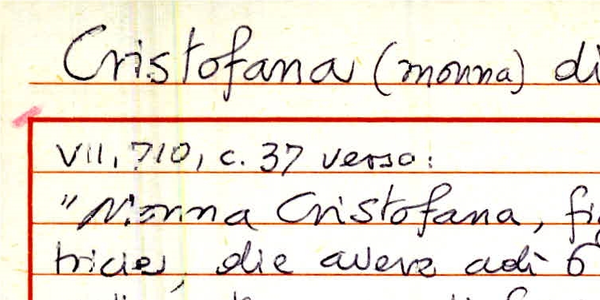 Cristofana (monna) di
VII, 710, c. 37 verso:
"Monna Cristofana, fi
tricie, die avere adì 6